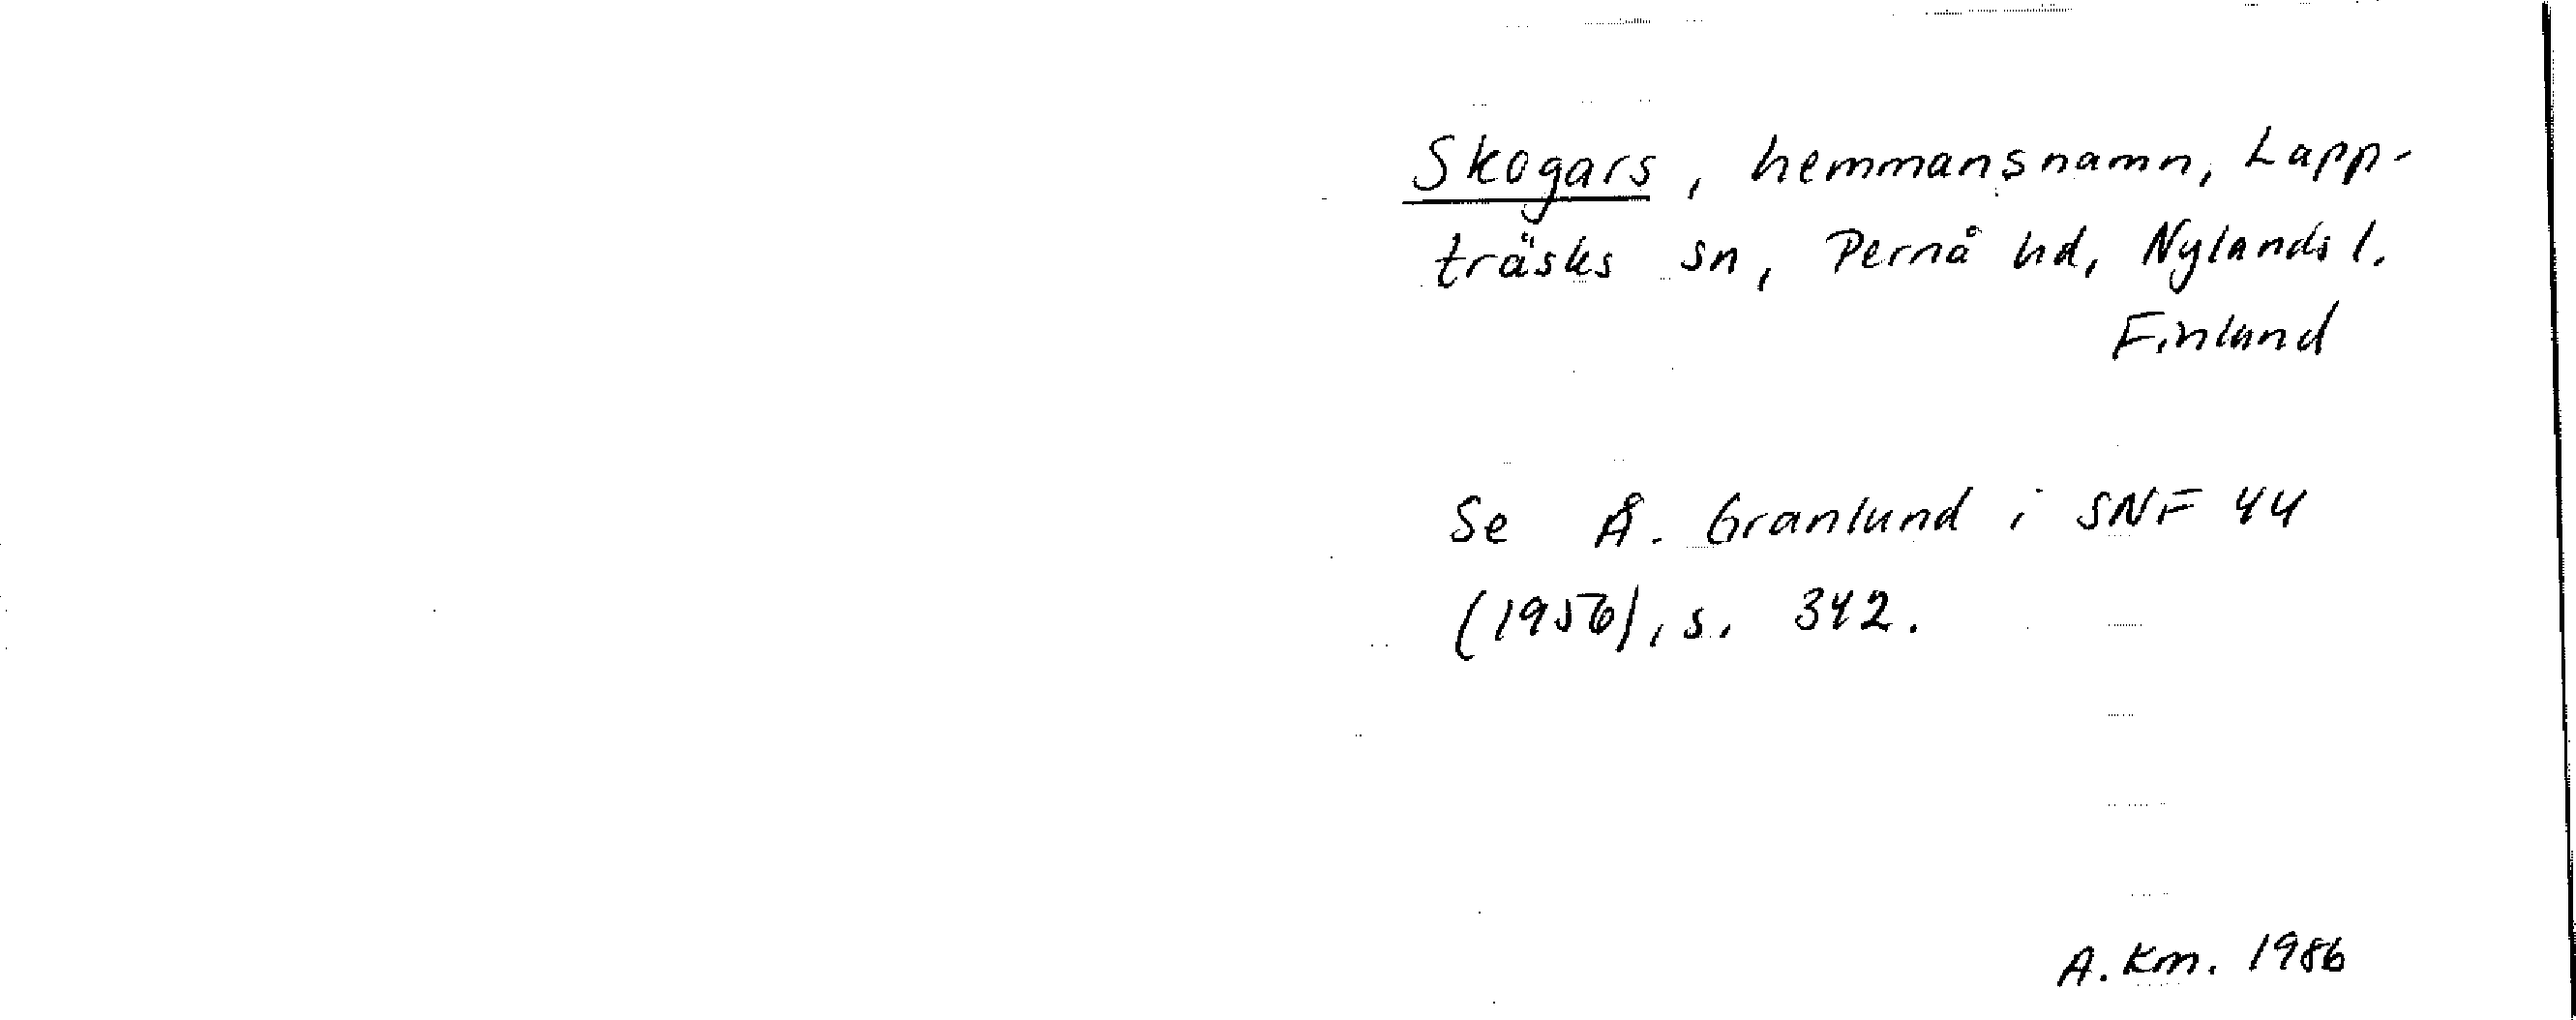 Skogars, hemmansnamn, Lapp-
träsks sn, Pernå hd, Nylands l.
Finland
Se Å. Granlund i SNF 44
(1956), s. 342.
A. Km. 1986